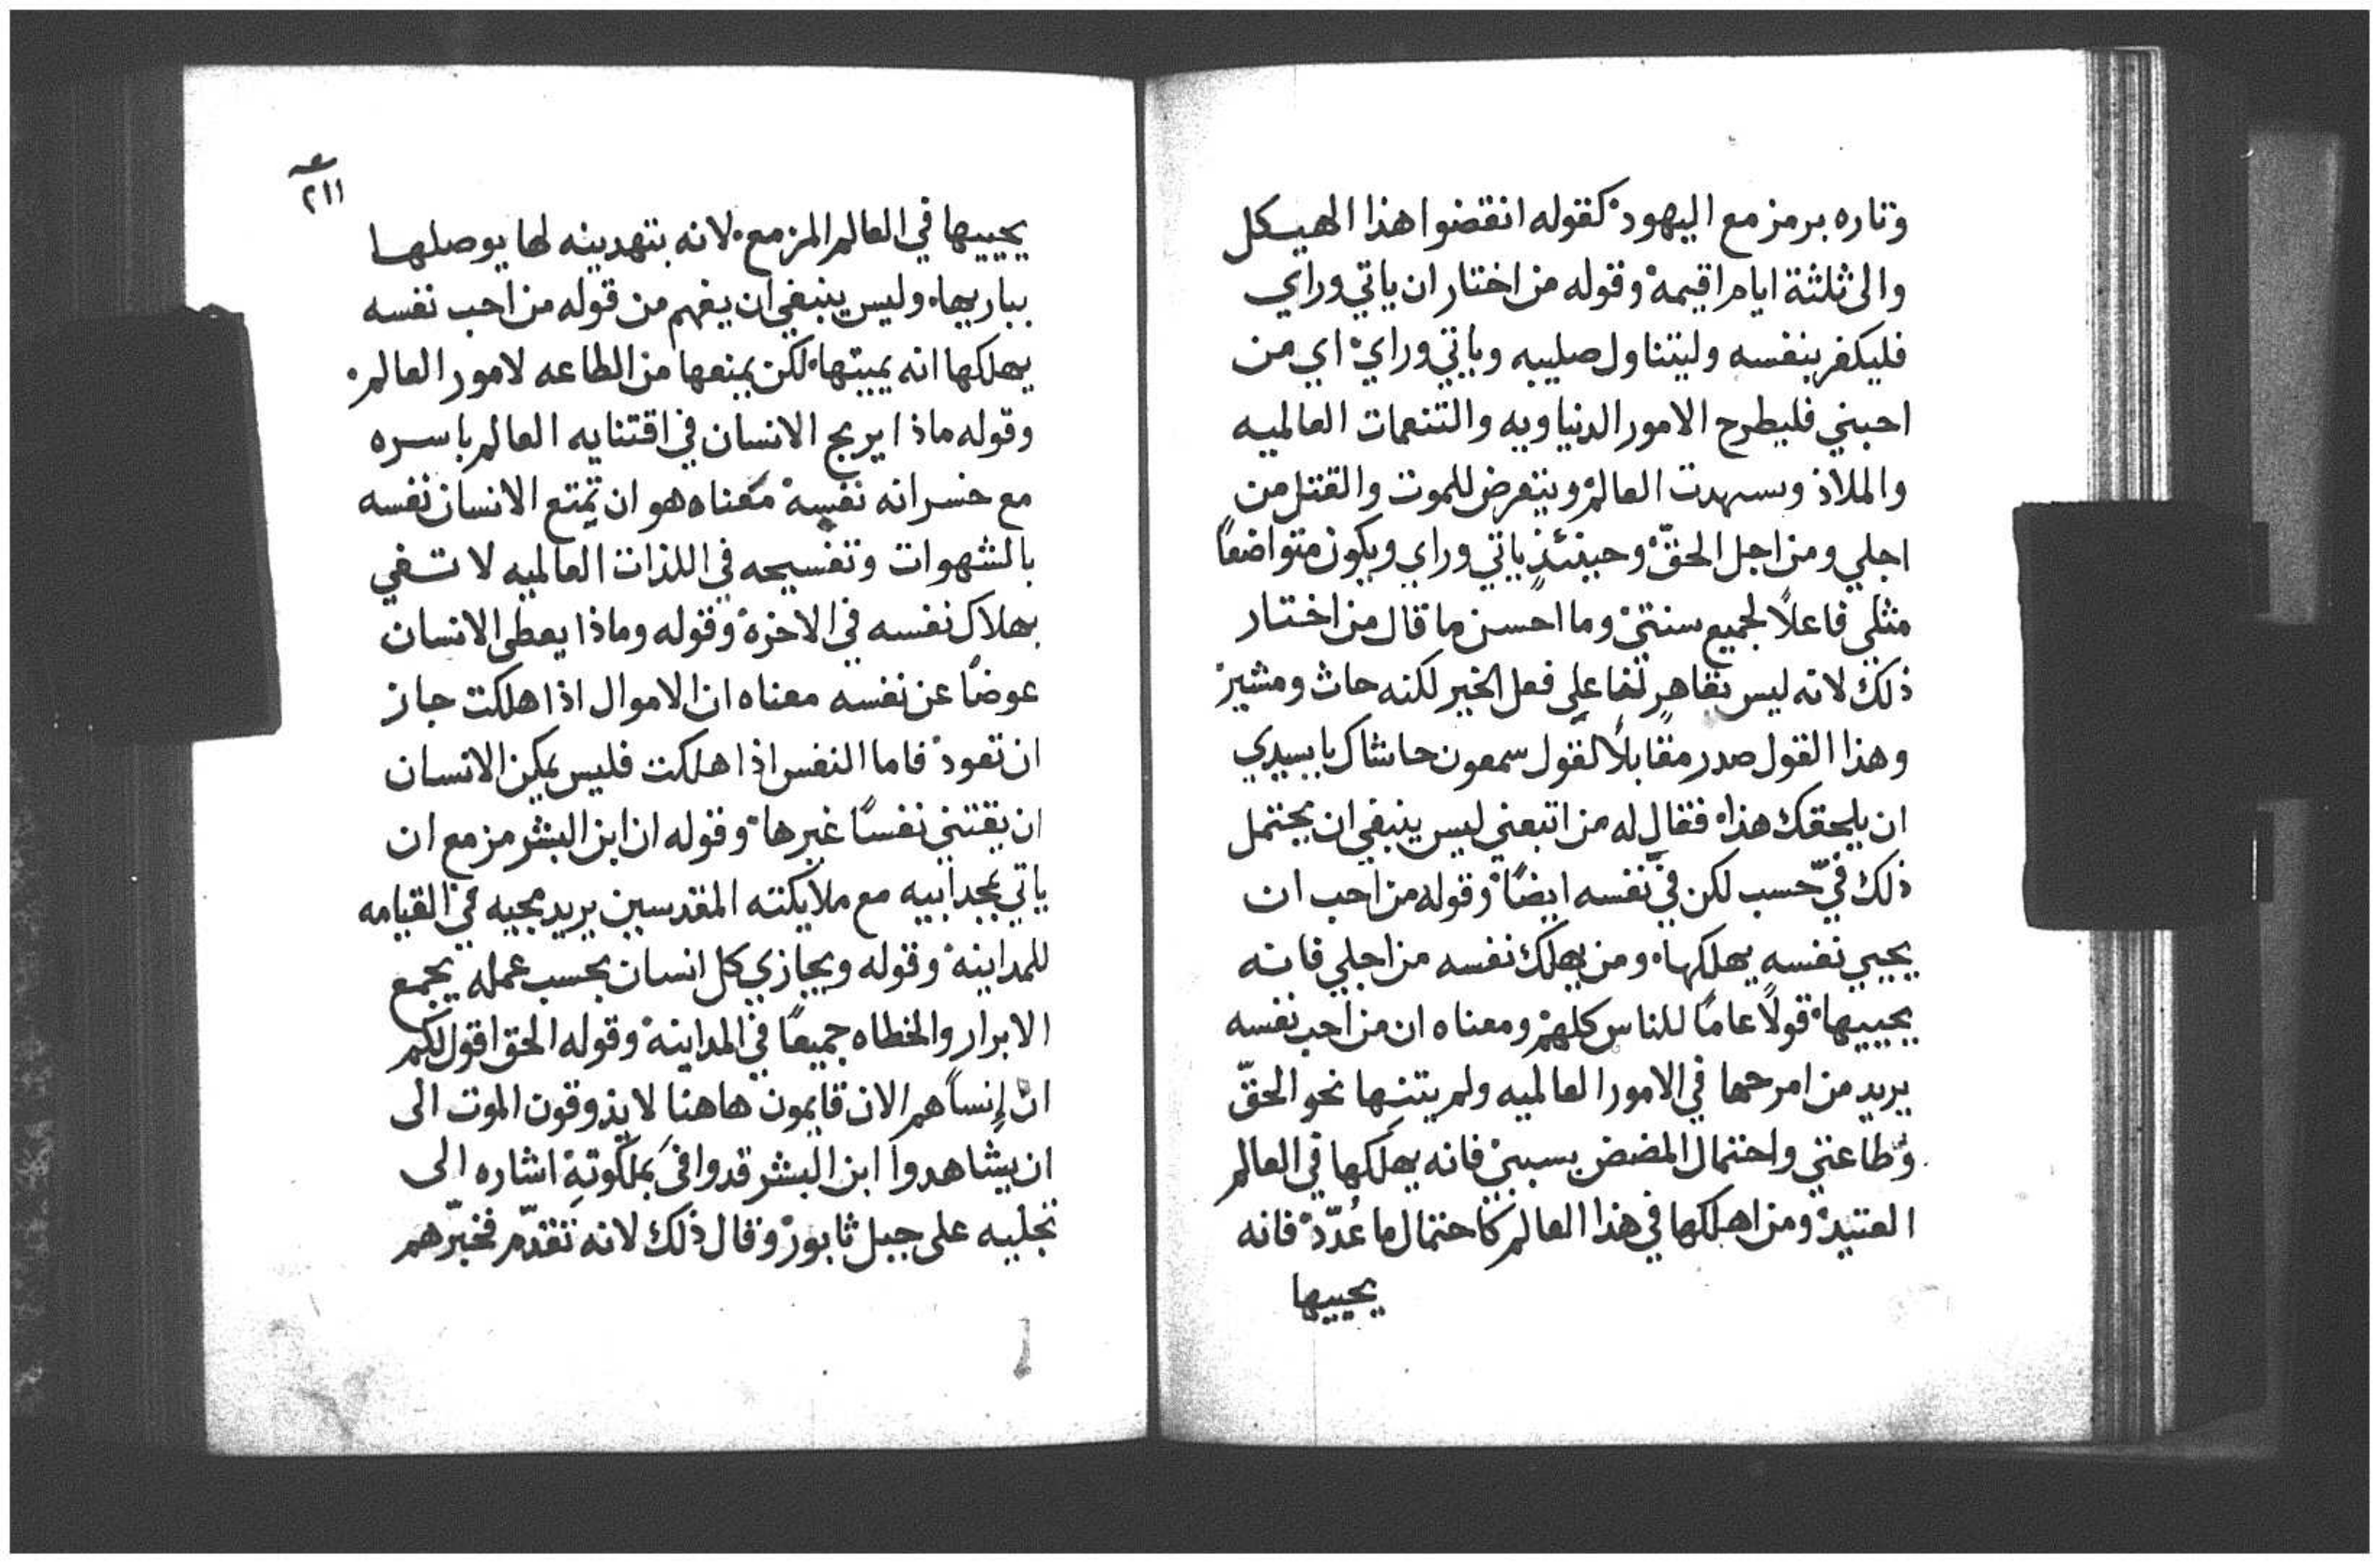 وتاره برمز مع اليهود كقوله انقضوا هذا الهيكل
والى ثلثة ايام اقيمه وقوله من اختار ان ياتي وراي
فليكفر بنفسه وليتناول صليبه وياتي وراي اي من
احبني فليطرح الامور الدنياويه والتنعمات العالميه
والملاذ العالم ويتعرض للموت والقتل من
اجلي ومن اجل الحقّ وحينئذٍ ياتي وراي ويكون متواضعًا
مثلي فاعلًا لجميع سنتي وما احسن ما قال من اختار
ذلك لانه ليس بقاهرٍ لنا على فعل الخير لكنه حاث ومشير
وهذا القول صدر مقابلًا لقول سمعون حاشاك يا سيدي
ان يلحقك هذا فقال له من اتبعني ليس ينبغي ان يحتمل
ذلك فيّ حسب لكن في نفسه ايضًا وقوله من احب ان
يحيي نفسه يهلكها ومن يهلك نفسه من اجلي فانه
يحييها قولًا عامًا للناس كلهم ومعناه ان من احب نفسه
يريد من امرحها في الامور العالميه ولم يثنها نحو الحقّ
وطاعتي واحتمال المضض بسببي فانه يهلكها في العالم
العتيد ومن اهلكها في هذا العالم كاحتمال ما عُدّد فانه
يحييها
٢١١
يحييها في العالم المزمع لانه بتهدينه لها يوصلها
بباريها وليس ينبغي ان يفهم من قوله من احب نفسه
يهلكها انه يميتها لكن يمنعها من الطاعه لامور العالم
وقوله ماذا يربح الانسان في اقتنايه العالم باسره
مع خسرانه نفسه معناه هو ان تمتع الانسان نفسه
بالشهوات وتفسيحه في اللذات العالميه لا تفي
بهلاك نفسه في الاخره وقوله وماذا يعطى الانسان
عوضًا عن نفسه معناه ان الاموال اذا هلكت جاز
ان تعود فاما النفس اذا هلكت فليس يمكن الانسان
ان يقتني نفسًا غيرها وقوله ان ابن البشر مزمع ان
ياتي بمجد ابيه مع ملايكته المقدسين يريد مجيه في القيامه
للمداينه وقوله ويجازي كل انسان بحسب عمله يجمع
الابرار والخطاه جميعًا في المداينه وقوله الحق اقول لكم
ان إنسًا هم الان قايمون هاهنا لا يذوقون الموت الى
ان يشاهدوا ابن البشر قد وافى بملكوته اشاره الى
تجليه على جبل ثابور وقال ذلك لانه تقدّم فخبّرهم